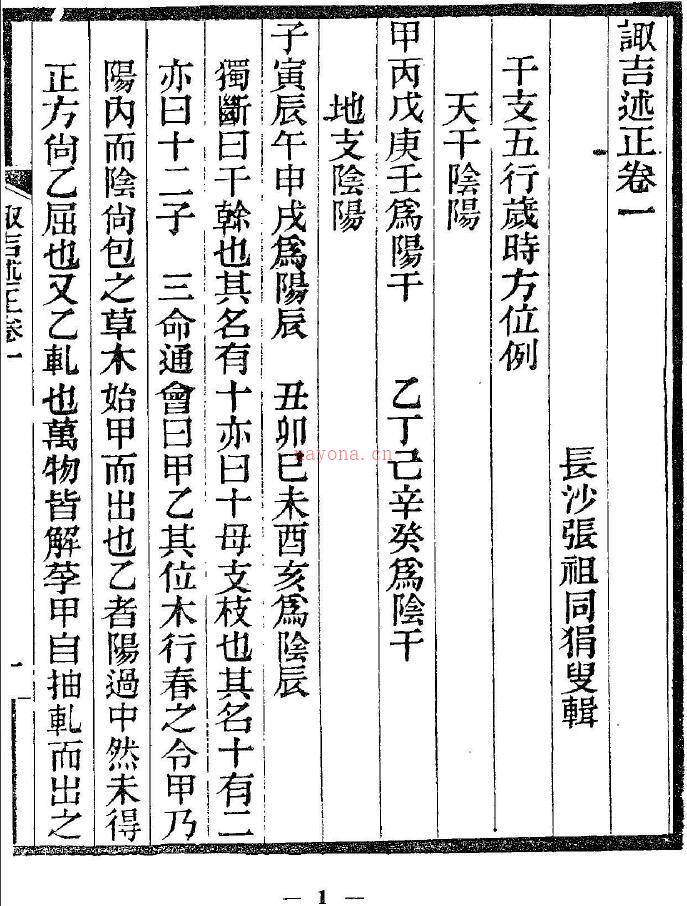 諏吉述正卷一
長沙張祖同狷叟輯
干支五行歲時方位例
天干陰陽
甲丙戊庚壬爲陽干　乙丁己辛癸爲陰干
地支陰陽
子寅辰午申戌爲陽辰　丑卯巳未酉亥爲陰辰
獨斷曰干幹也其名有十亦曰十母支枝也其名十有二
亦曰十二子　三命通會曰甲乙其位木行春之令甲乃
陽內而陰尙包之草木始甲而出也乙者陽過中然未得
正方尙乙屈也又乙軋也萬物皆解莩甲自抽軋而出之
諏吉述正卷一
一
nayona.cn
— 1 —